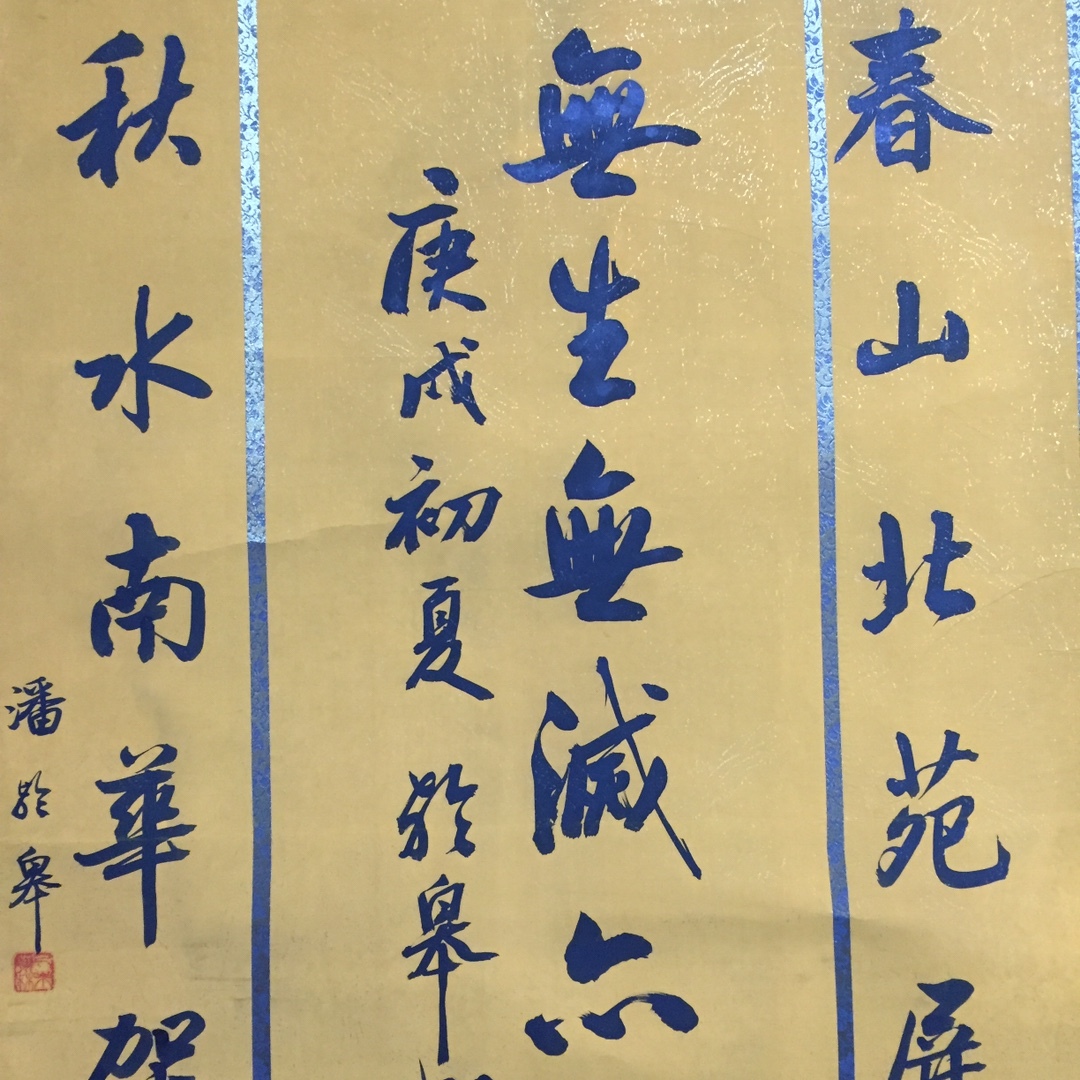 春山北苑屏
無生無滅亦
庚戌初夏於皋
秋水南華架
潘於皋